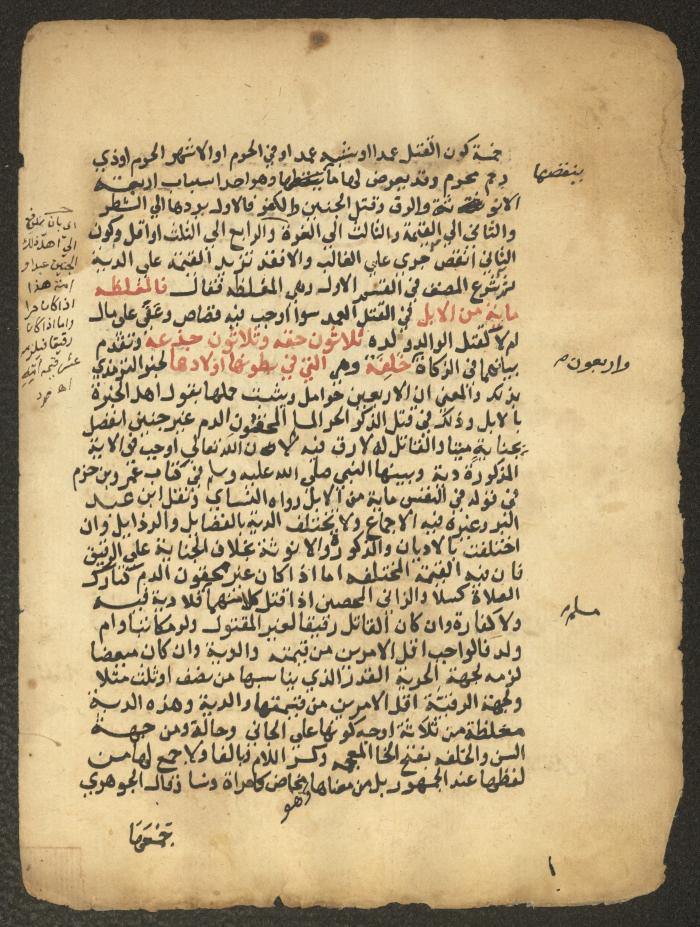 خمسة كون القتل عمدا او شبه عمد او في الحرم او الاشهر الحرم او ذي
رحم محرم وقد يعرض لها ما ينقصها وهو احد اسباب اربعة
الانوثة والرق وقتل الجنين والكفر فالاول يردها الي الشطر
والثاني الي القيمة والثالث الي الغرة والرابع الي الثلث او اقل وكون
الثاني انقص جري علي الغالب والا فقد تزيد القيمة علي الدية
ثم شرع المصنف في القسم الاول وهي المغلظة فقال فالمغلظة
ماية من الابل في القتل العمد سوا اوجب فيه قصاص وعفي علي مال
ام لا كقتل الوالد ولده ثلاثون حقه وثلاثون جذعة وتقدم
بيانهما في الزكاة خلفة وهي التي في بطونها اولادها لخبر الترمذي
بذلك والمعني ان الاربعين حوامل ويثبت حملها بقول اهل الخبرة
بالابل وذلك في قتل الذكر الحر المسلم المحقون الدم غير جنين انفصل
بجناية ميتا والقاتل له لا رق فيه لان الله تعالي اوجب في الاية
المذكورة دية وبينها النبي صلي الله عليه وسلم في كتاب عمرو بن حزم
في قوله في النفس ماية من الابل رواه النساي ونقل ابن عبد
البر وغيره فيه الاجماع ولا تختلف الدية بالفضايل والرذايل وان
اختلفت بالاديان والذكورة والانوثة بخلاف الجناية علي الرقيق
فان فيه القيمة المختلفة اما اذا كان غير محقون الدم كتارك
الصلاة كسلا والزاني المحصن اذا قتل كلا منهما فلا دية فيه
ولا كفارة وان كان القاتل رقيقا لغير المقتول ولو مكاتبا وام
ولد فالواجب اقل الامرين من قيمته والدية وان كان مبعضا
لزمه لجهة الحرية القدر الذي يناسبها من نصف او ثلث مثلا
ولجهة الرقية اقل الامرين من قيمتها والدية وهذه الدية
مغلظة من ثلاثة اوجه كونها علي الجاني وحالة ومن جهة
السن والخلفه بفتح الخا المعجمه وكسر اللام وبالفا ولا جمع لها من
لفظها عند الجمهور بل من معناها وهو مخاض كامراة ونسا وقال الجوهري
جمعها
ينقصها
واربعون
مسلم
الجنين عبدا او
امة هذا
اذا كان حرا
واما اذا كان
رقيقا فيلزمه
عشر قيمة امه
اه
١